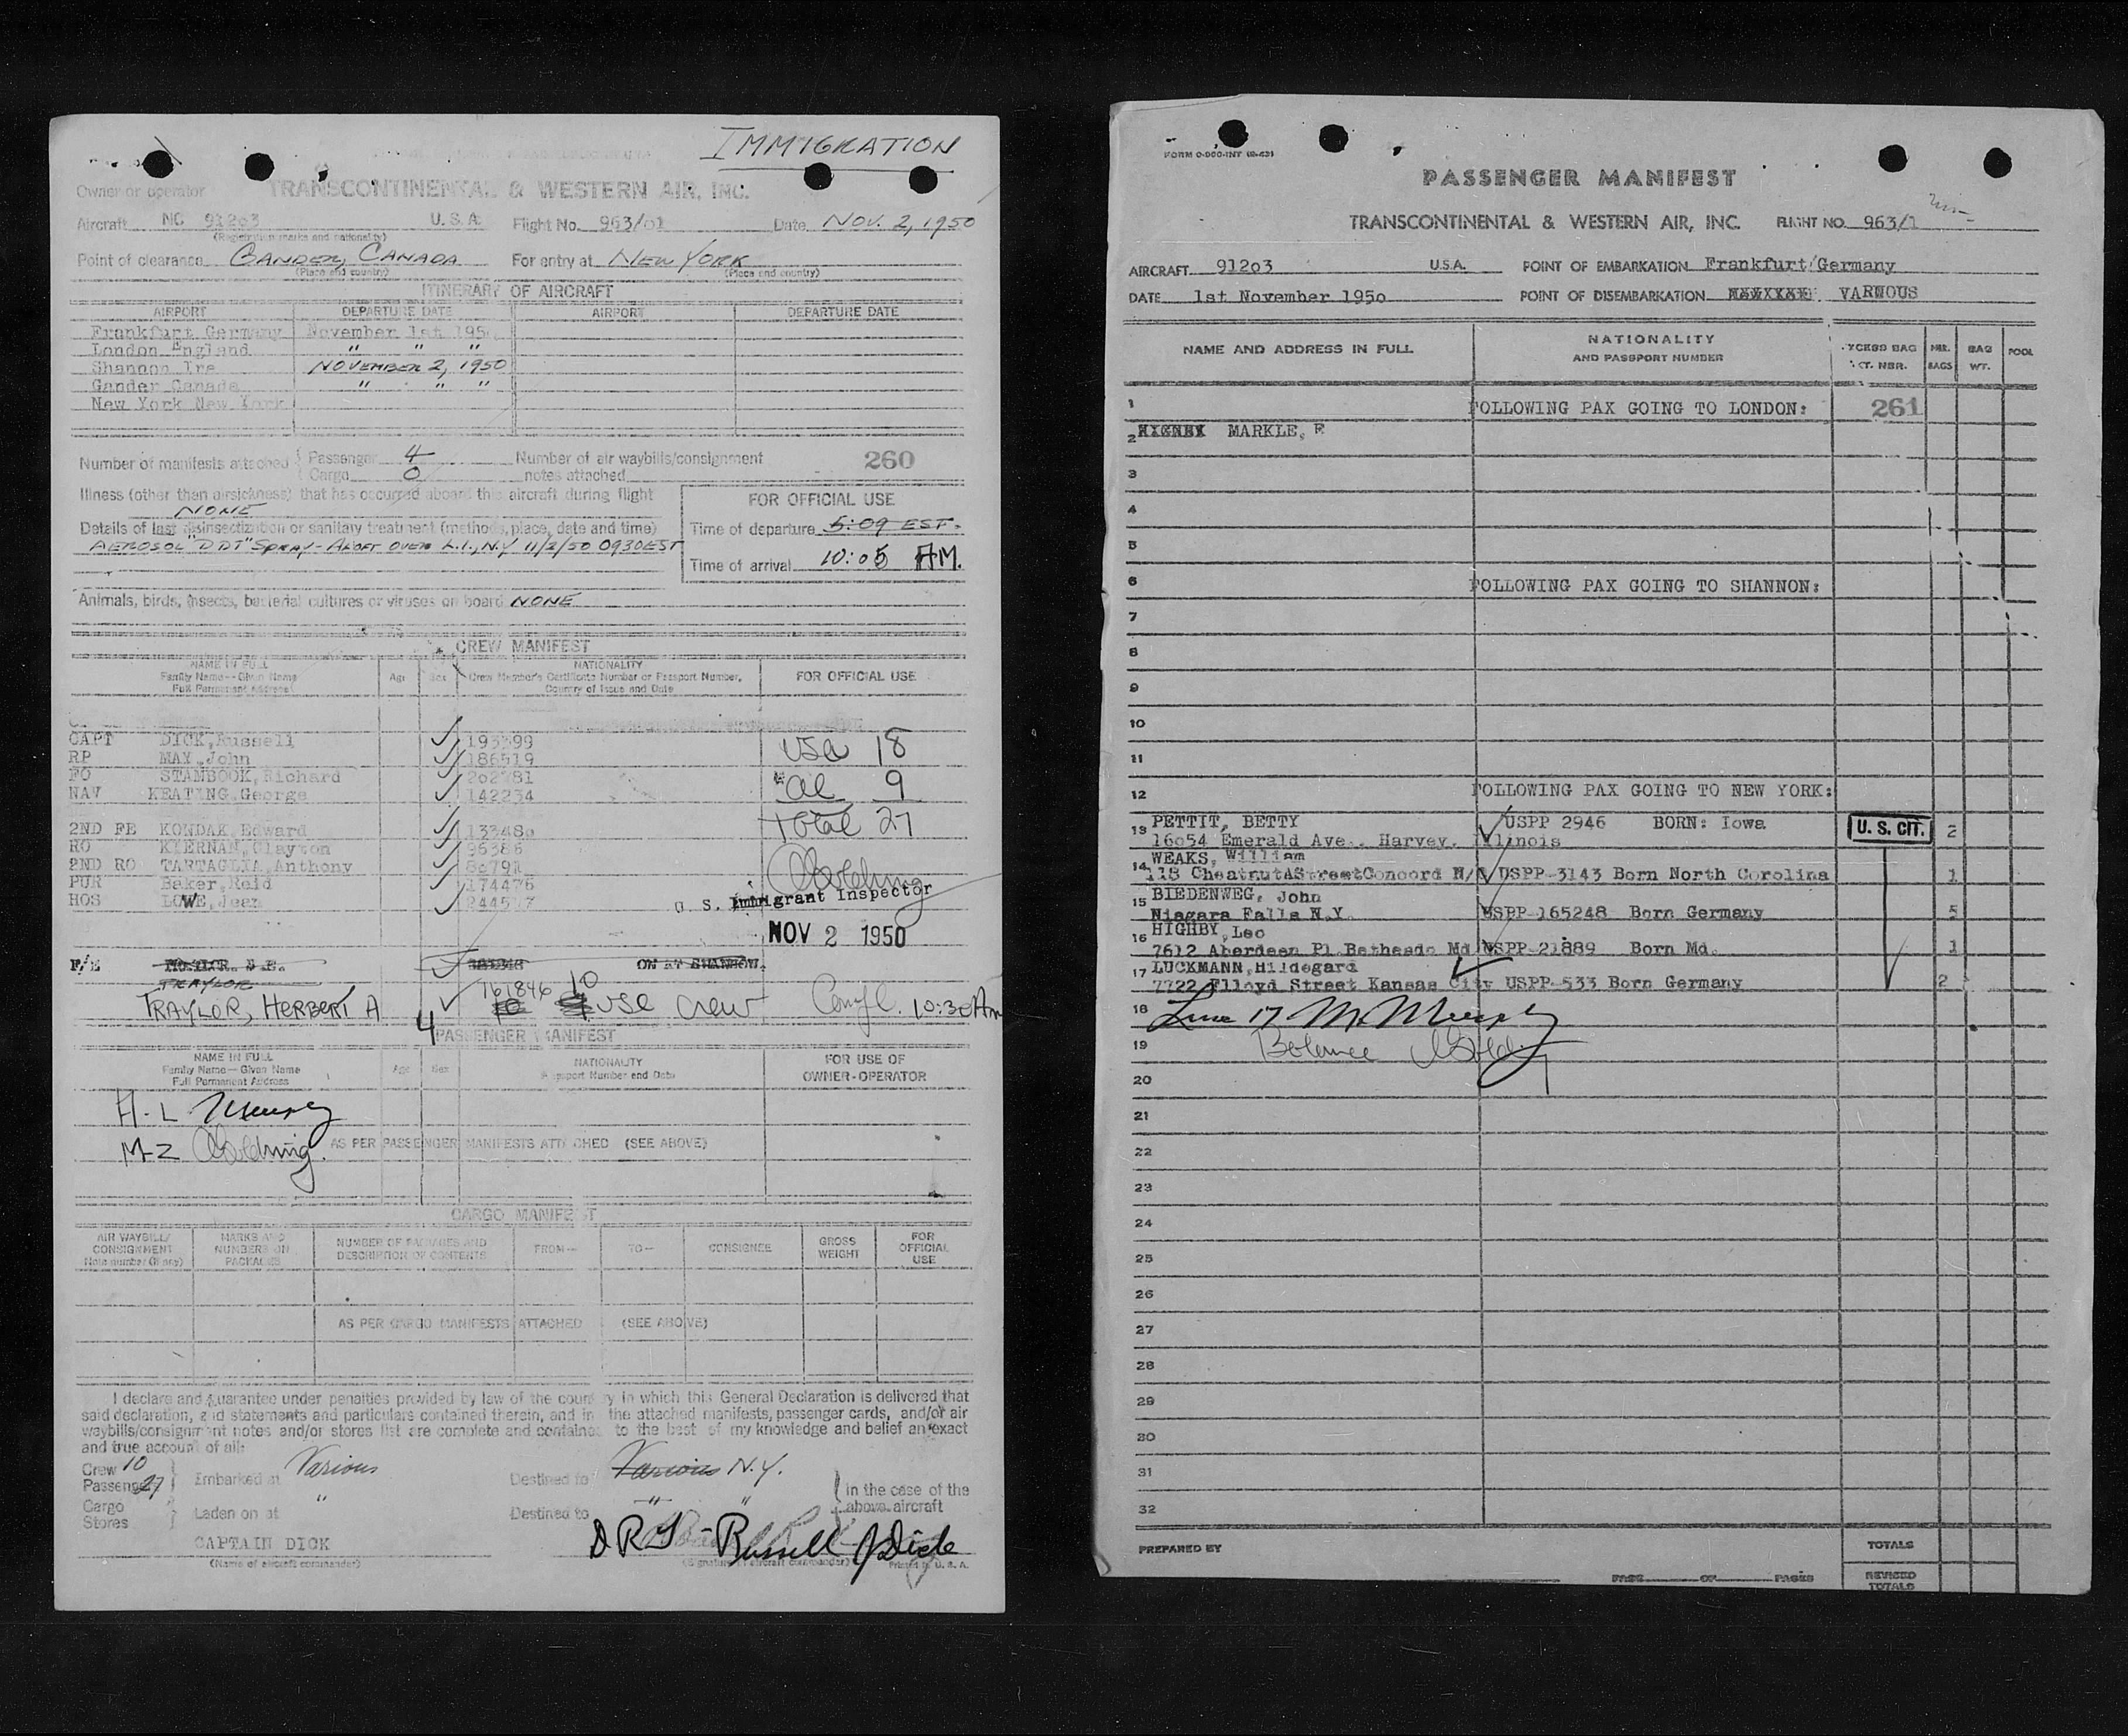 IMMIGRATION
Owner or operator TRANSCONTINENTAL & WESTERN AIR, INC.
Aircraft NC 91203 U.S.A. Flight No. 963/01 Date NOV. 2, 1950
(Registration marks and nationality)
Point of clearance GANDER, CANADA For entry at NEW YORK
(Place and country) (Place and country)
ITINERARY OF AIRCRAFT
AIRPORT DEPARTURE DATE AIRPORT DEPARTURE DATE
Frankfurt Germany November 1st 195
London England " " "
Shannon Ire NOVEMBER 2, 1950
Gander Canada " " "
New York New York
Number of manifests attached { Passenger 4 Number of air waybills/consignment 260
Cargo 0 notes attached
Illness (other than airsickness) that has occurred aboard this aircraft during flight
NONE
FOR OFFICIAL USE
Details of last disinsectization or sanitary treatment (methods, place, date and time)
Time of departure 5:09 EST.
AEROSOL "DDT" SPRAY - ALOFT OVER L.I., N.Y 11/2/50 0930EST
Time of arrival 10:05 AM.
Animals, birds, insects, bacterial cultures or viruses on board NONE
CREW MANIFEST
NAME IN FULL
Family Name—Given Name
Full Permanent Address
Age Sex
NATIONALITY
Crew Member's Certificate Number or Passport Number,
Country of Issue and Date
FOR OFFICIAL USE
CAPT DICK, Russell 193399 usa 18
RP MAY, John 186519
FO STAMBOOK, Richard 202781 al 9
NAV KEATING, George 142234
Total 27
2ND FE KONDAK, Edward 13348o
RO KIERNAN, Clayton 96386
2ND RO TARTAGLIA, Anthony
PUR Baker, Reid 174476
HOS LOWE, Jean
U. S. Immigrant Inspector
NOV 2 1950
F/E ON AT SHANNON.
TRAYLOR
TRAYLOR, HERBERT A 161846 10 use crew 10:30Am
4
PASSENGER MANIFEST
NAME IN FULL
Family Name—Given Name
Full Permanent Address
Age Sex
NATIONALITY
Passport Number and Date
FOR USE OF
OWNER-OPERATOR
H-L Murphy
M-Z Goldring.
AS PER PASSENGER MANIFESTS ATTACHED (SEE ABOVE)
CARGO MANIFEST
AIR WAYBILL/ CONSIGNMENT Note number (if any)
MARKS AND NUMBERS ON PACKAGES
NUMBER OF PACKAGES AND DESCRIPTION OF CONTENTS
FROM— TO— CONSIGNEE
GROSS WEIGHT
FOR OFFICIAL USE
AS PER CARGO MANIFESTS ATTACHED (SEE ABOVE)
I declare and guarantee under penalties provided by law of the country in which this General Declaration is delivered that
said declaration, and statements and particulars contained therein, and in the attached manifests, passenger cards, and/or air
waybills/consignment notes and/or stores list are complete and contained to the best of my knowledge and belief an exact
and true account of all:
Crew 10
Passenger 27 } Embarked at Various Destined to Various N.Y.
Cargo
Stores } Laden on at " Destined to " "
in the case of the
above aircraft
CAPTAIN DICK
(Name of aircraft commander)
Russell J Dick
(Signature of aircraft commander) Printed in U. S. A.
PASSENGER MANIFEST
TRANSCONTINENTAL & WESTERN AIR, INC. FLIGHT NO. 963/1
AIRCRAFT 91203 U.S.A. POINT OF EMBARKATION Frankfurt/Germany
DATE 1st November 195o POINT OF DISEMBARKATION VARIOUS
NAME AND ADDRESS IN FULL
NATIONALITY
AND PASSPORT NUMBER
EXCESS BAG
KT. NBR.
NBR. BAGS
BAG WT.
POOL
1 FOLLOWING PAX GOING TO LONDON: 261
2 MARKLE, F
3
4
5
6 FOLLOWING PAX GOING TO SHANNON:
7
8
9
10
11
12 FOLLOWING PAX GOING TO NEW YORK:
13 PETTIT, BETTY USPP 2946 BORN: Iowa U. S. CIT. 2
16054 Emerald Ave., Harvey, Illinois
14 WEAKS, William
118 CheatnutAStreetConcord N/C USPP-3143 Born North Corolina 1
15 BIEDENWEG, John
Niagara Falls N.Y. USPP-165248 Born Germany 5
16 HIGHBY, Leo
7612 Aberdeen Pl.Bethesda Md USPP-21889 Born Md. 1
17 LUCKMANN, Hildegard
7722 Flloyd Street Kansas City USPP-533 Born Germany 2
18 Line 17 M. Murphy
19 Balance Goldring
20
21
22
23
24
25
26
27
28
29
30
31
32
PREPARED BY TOTALS
PAGE OF PAGES REVISED TOTALS